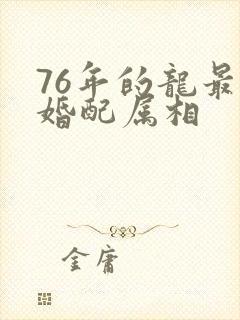 76年的龍最
婚配属相
金庸